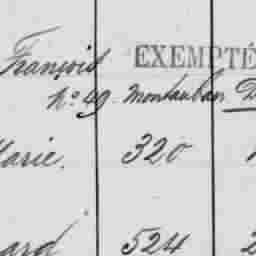 François EXEMPTÉ
No 49 Montauban D
Marie. 320
ard 524 2